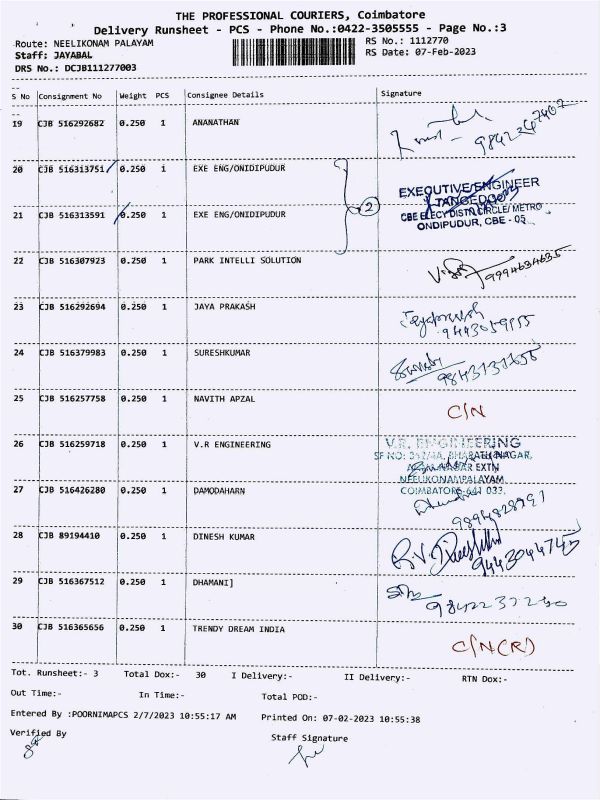 THE PROFESSIONAL COURIERS, Coimbatore
Delivery Runsheet - PCS - Phone No.:0422-3505555 - Page No.:3
Route: NEELIKONAM PALAYAM RS No.: 1112770
Staff: JAYABAL RS Date: 07-Feb-2023
DRS No.: DCJB111277003
S No Consignment No Weight PCS Consignee Details Signature
19 CJB 516292682 0.250 1 ANANATHAN
20 CJB 516313751 0.250 1 EXE ENG/ONIDIPUDUR
2
EXECUTIVE ENGINEER
TANGEDCO
21 CJB 516313591 0.250 1 EXE ENG/ONIDIPUDUR CBE ELECY DISTN CIRCLE/ METRO
ONDIPUDUR, CBE - 05
22 CJB 516307923 0.250 1 PARK INTELLI SOLUTION 9994634635
23 CJB 516292694 0.250 1 JAYA PRAKASH Jayaprakash
24 CJB 516379983 0.250 1 SURESHKUMAR
25 CJB 516257758 0.250 1 NAVITH APZAL C/N
26 CJB 516259718 0.250 1 V.R ENGINEERING V.R. ENGINEERING
BHARATH NAGAR,
EXTN
NEELIKONAMPALAYAM,
27 CJB 516426280 0.250 1 DAMODAHARN COIMBATORE-641 033.
9894828991
28 CJB 89194410 0.250 1 DINESH KUMAR
9443044745
29 CJB 516367512 0.250 1 DHAMANI]
30 CJB 516365656 0.250 1 TRENDY DREAM INDIA C/N(R)
Tot. Runsheet:- 3 Total Dox:- 30 I Delivery:- II Delivery:- RTN Dox:-
Out Time:- In Time:- Total POD:-
Entered By :POORNIMAPCS 2/7/2023 10:55:17 AM Printed On: 07-02-2023 10:55:38
Verified By Staff Signature